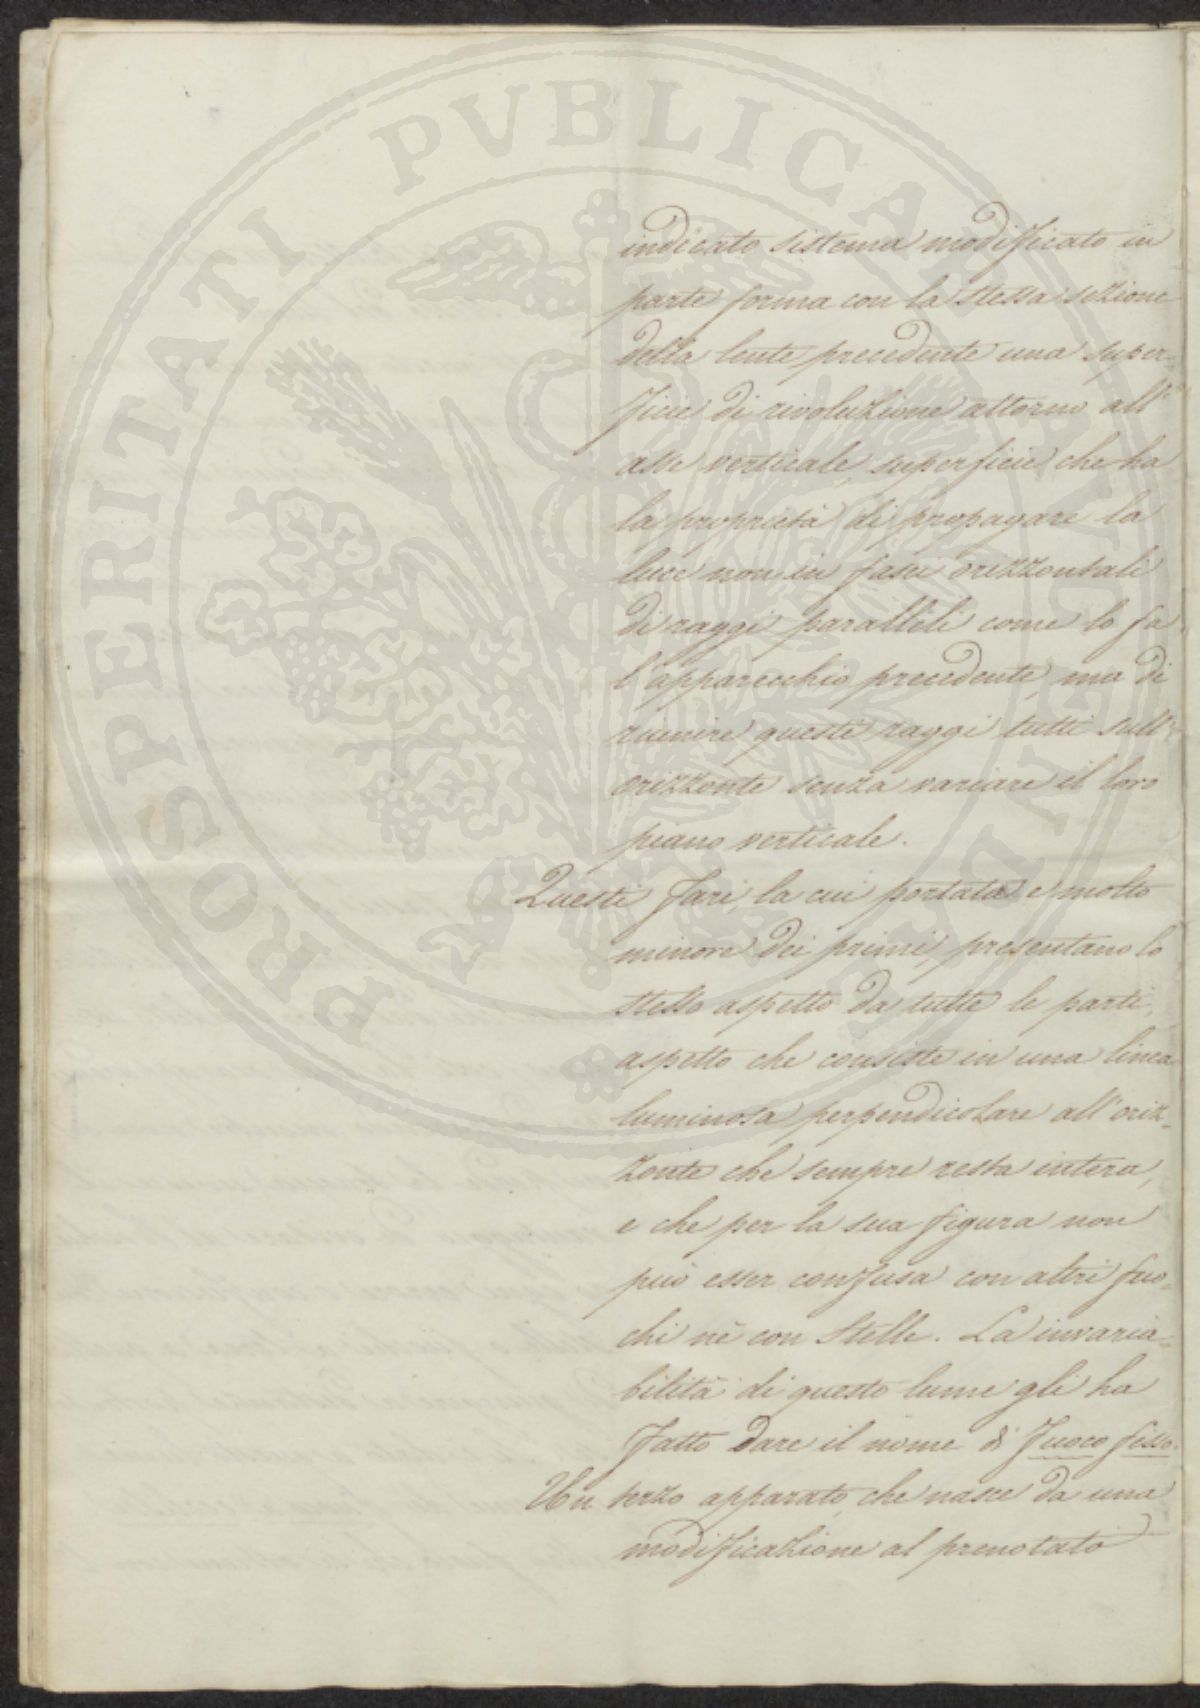 PROSPERITATI PVBLICAE AVGENDAE
indicato sistema modificato in
parte forma con la stessa sezione
della lente precedente una super-
ficie di rivoluzione attorno all'
asse verticale, superficie, che ha
la proprietà di propagare la
luce non in fasci orizzontali
di raggi paralleli come lo fa
l'apparecchio precedente, ma di
riunire questi raggi tutti sull'
orizzonte senza variare il loro
piano verticale.
Questi Fari, la cui portata è molto
minore dei primi, presentano lo
stesso aspetto da tutte le parti,
aspetto che consiste in una linea
luminosa perpendicolare all'oriz-
zonte che sempre resta intera,
e che per la sua figura non
può esser confusa con altri fuo-
chi nè con Stelle. La invaria-
bilità di questo lume gli ha
fatto dare il nome di Fuoco fisso.
Un terzo apparato, che nasce da una
modificazione al prenotato